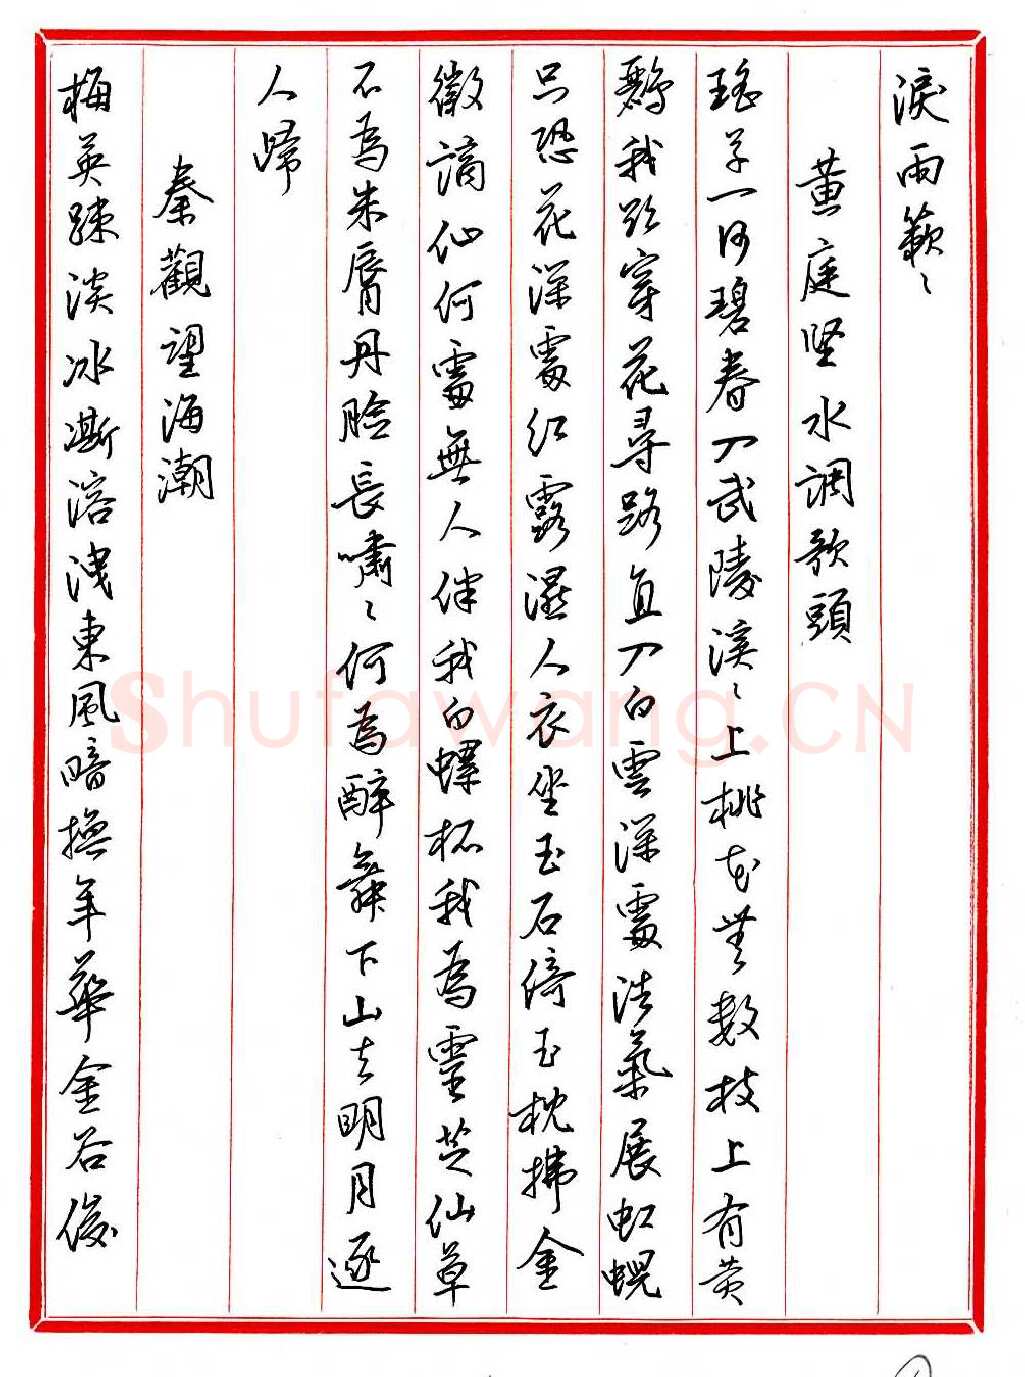 淚雨簌〻
黄庭坚水調歌頭
瑤草一何碧春入武陵溪〻上桃花無數枝上有黄
鸝我欲穿花尋路直入白雲深處浩氣展虹蜺
只恐花深處紅露濕人衣坐玉石倚玉枕拂金
徽謫仙何處無人伴我白螺杯我為靈芝仙草
不為朱脣丹臉長嘯〻何為醉舞下山去明月逐
人歸
秦觀望海潮
梅英疎淡冰澌溶洩東風暗換年華金谷俊
Shufawang.CN